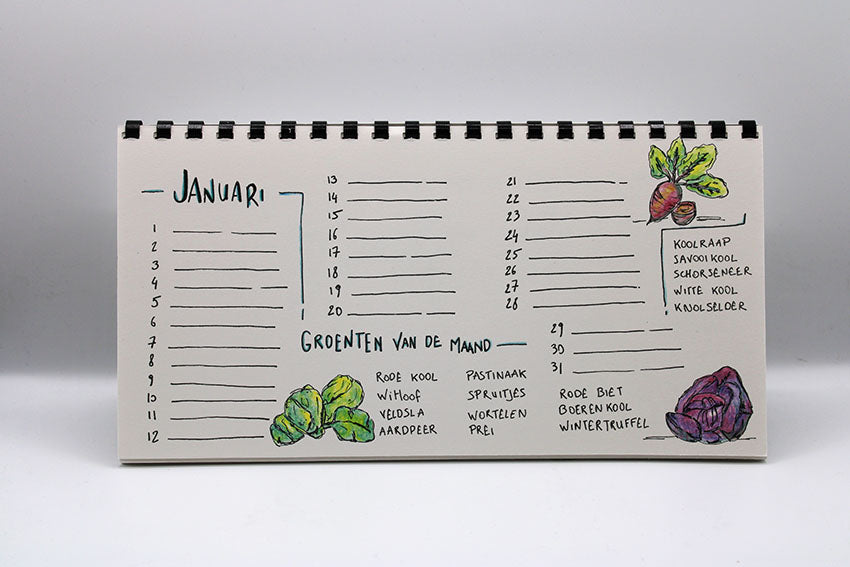 JANUARI
1
2
3
4
5
6
7
8
9
10
11
12
13
14
15
16
17
18
19
20
21
22
23
24
25
26
27
28
29
30
31
KOOLRAAP
SAVOOIKOOL
SCHORSENEER
WITTE KOOL
KNOLSELDER
GROENTEN VAN DE MAAND
RODE KOOL
Witloof
VELDSLA
AARDPEER
PASTINAAK
SPRUITJES
WORTELEN
PREI
RODE BIET
BOERENKOOL
WINTERTRUFFEL